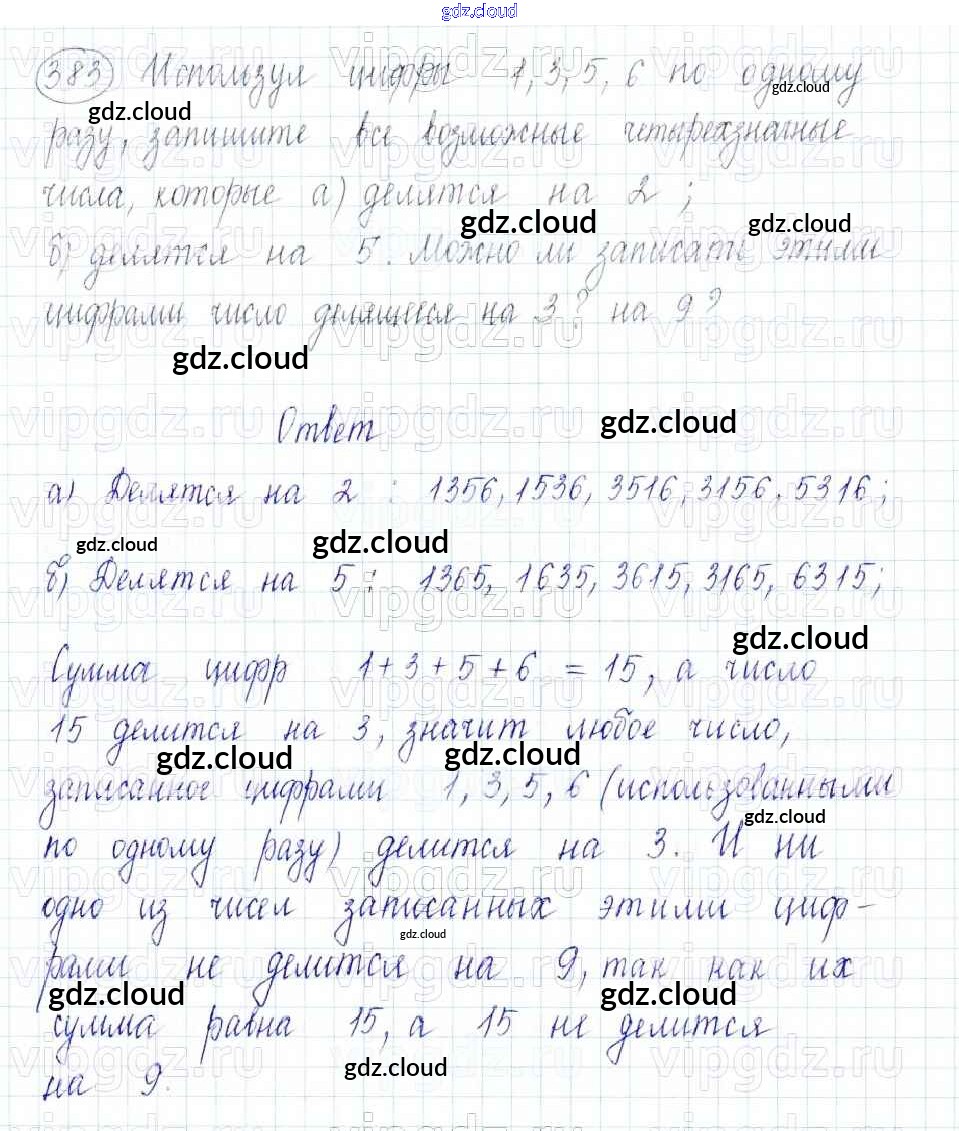 gdz.cloud
383 Используя цифры 1, 3, 5, 6 по одному
gdz.cloud
gdz.cloud
разу, запишите все возможные четырехзначные
числа, которые а) делятся на 2 ;
gdz.cloud
gdz.cloud
б) делятся на 5. Можно ли записать этими
цифрами число делящееся на 3? на 9?
gdz.cloud
Ответ
gdz.cloud
а) Делятся на 2 : 1356, 1536, 3516, 3156, 5316;
gdz.cloud
gdz.cloud
б) Делятся на 5 : 1365, 1635, 3615, 3165, 6315;
gdz.cloud
Сумма цифр 1+3+5+6 = 15, а число
15 делится на 3, значит любое число,
gdz.cloud
gdz.cloud
записанное цифрами 1, 3, 5, 6 (использованными
gdz.cloud
по одному разу) делится на 3. И ни
одно из чисел записанных этими циф-
gdz.cloud
рами не делится на 9, так как их
gdz.cloud
gdz.cloud
сумма равна 15, а 15 не делится
gdz.cloud
на 9.
vipgdz.ru